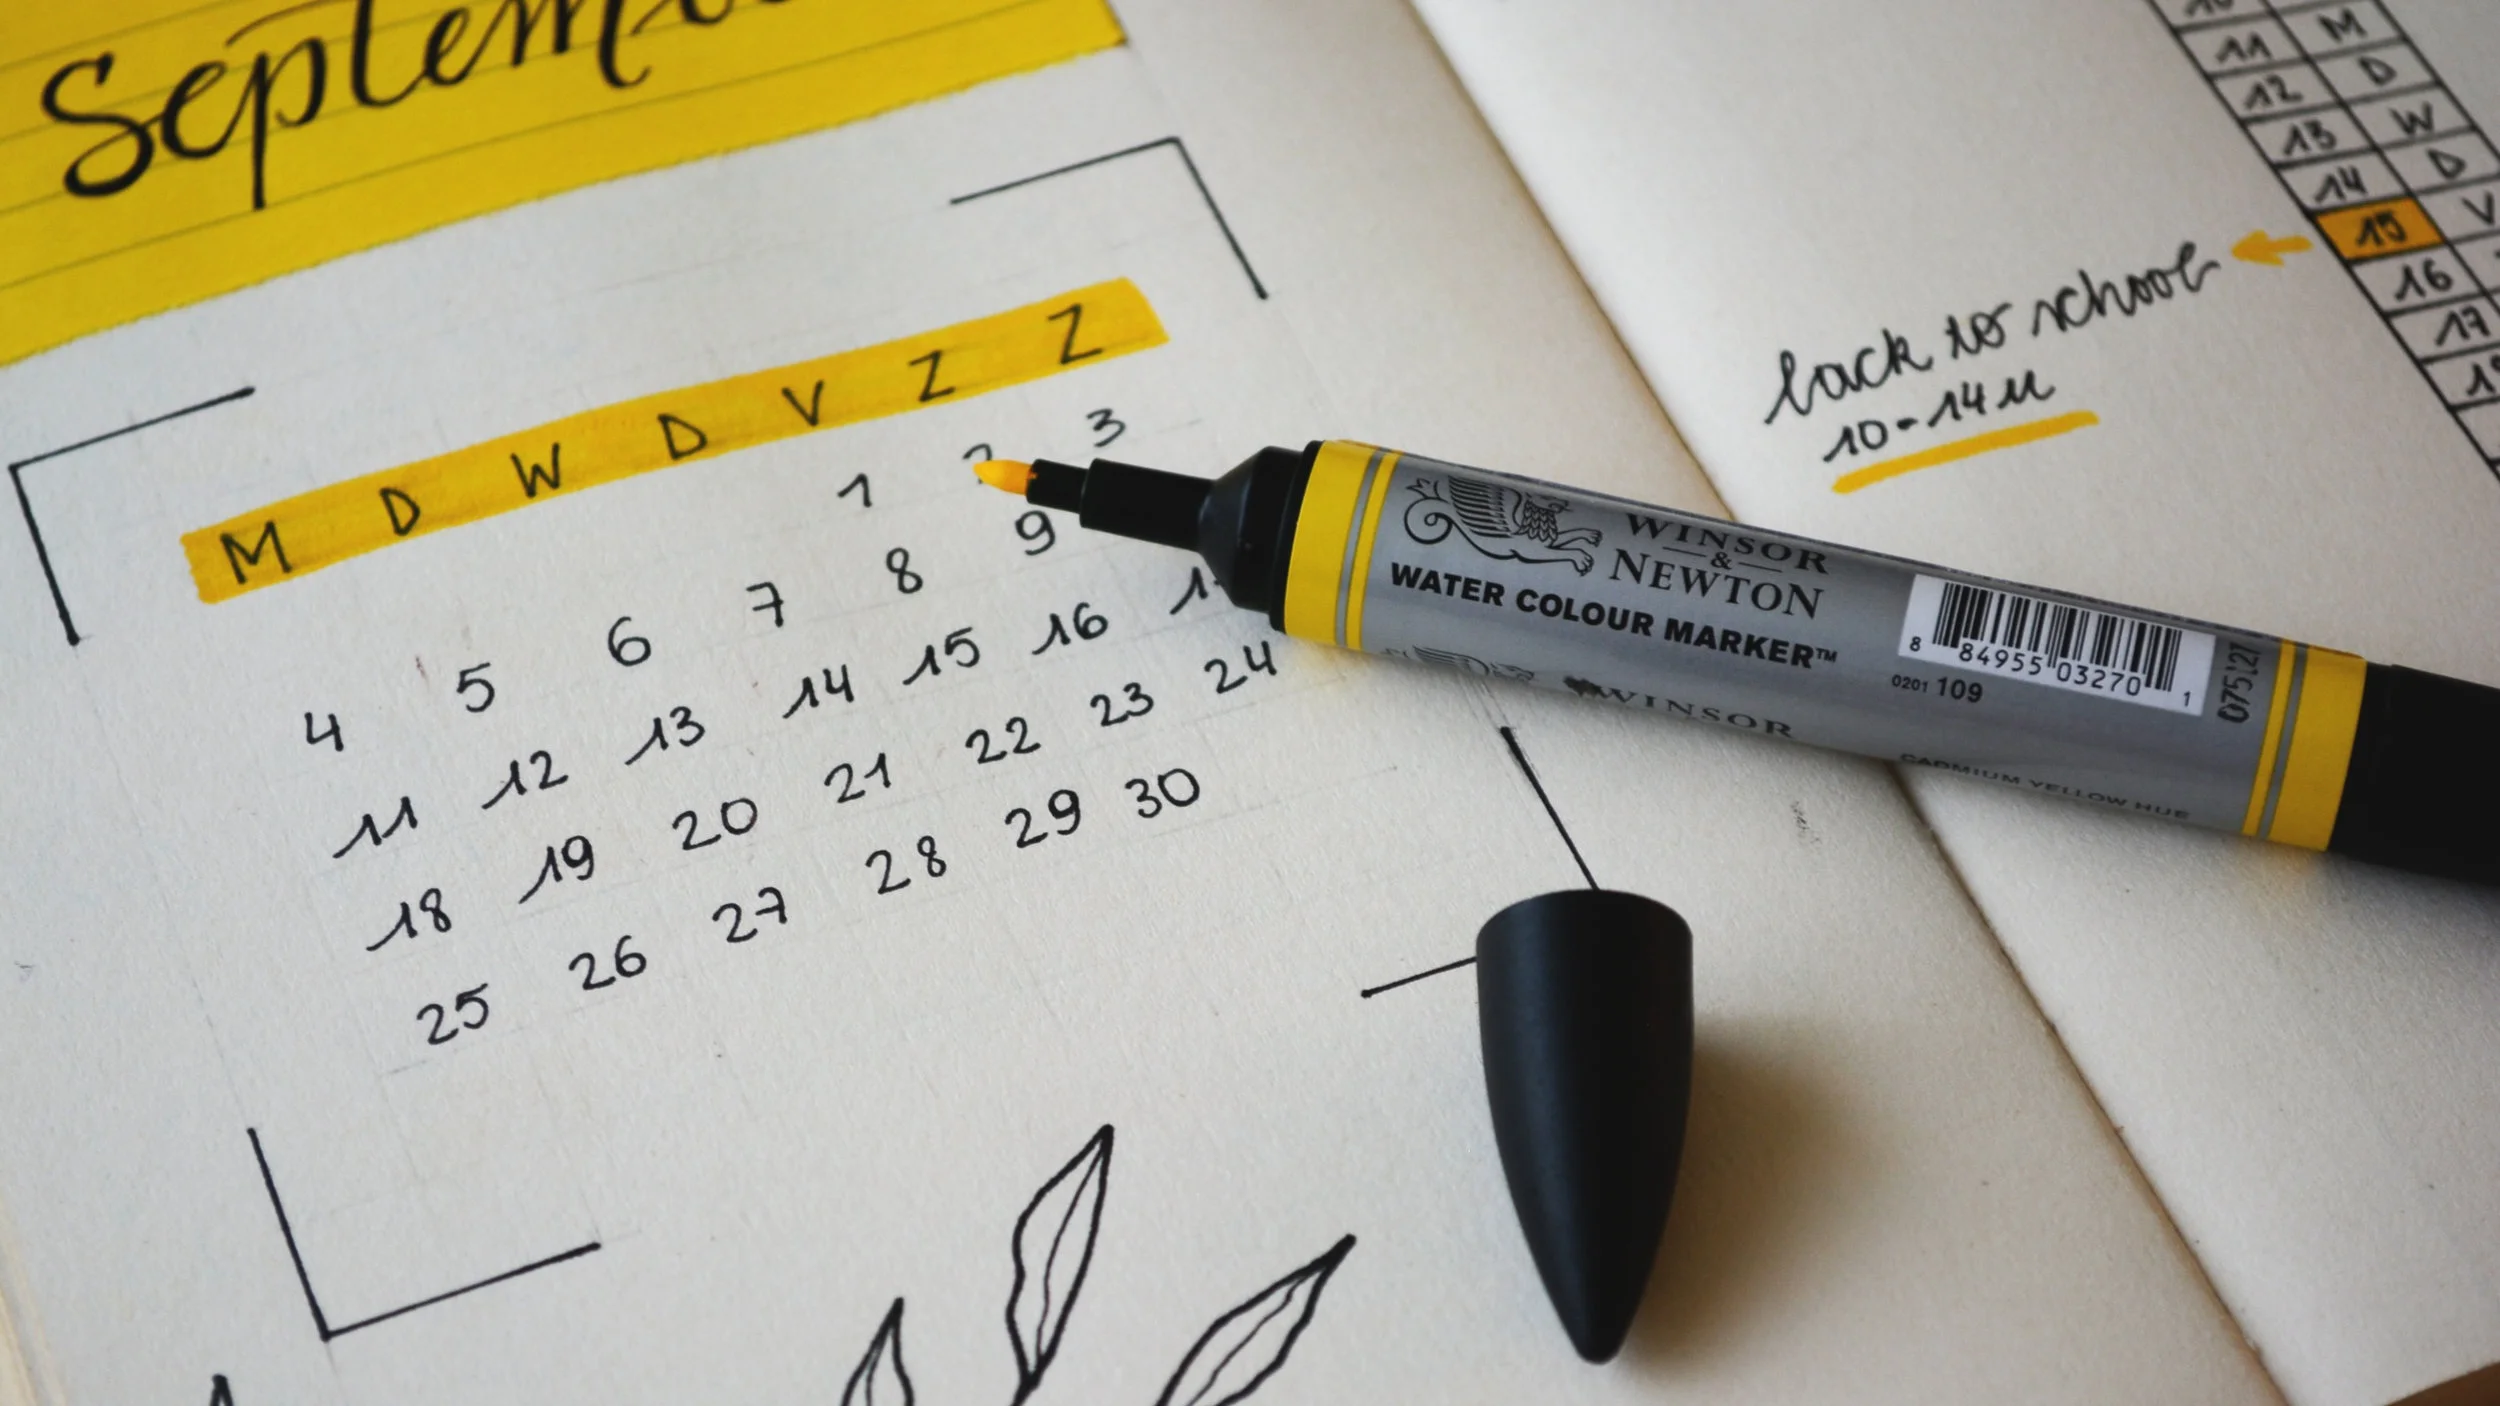 M D W D V Z Z
1 3
4 5 6 7 8 9
11 12 13 14 15 16
18 19 20 21 22 23 24
25 26 27 28 29 30
11 M
12 D
13 W
14 D
15 V
16
17
back to school
10-14u
WINSOR
&
NEWTON
WATER COLOUR MARKER™
8 84955 03270 1
0201 109
075127
WINSOR
CADMIUM YELLOW HUE